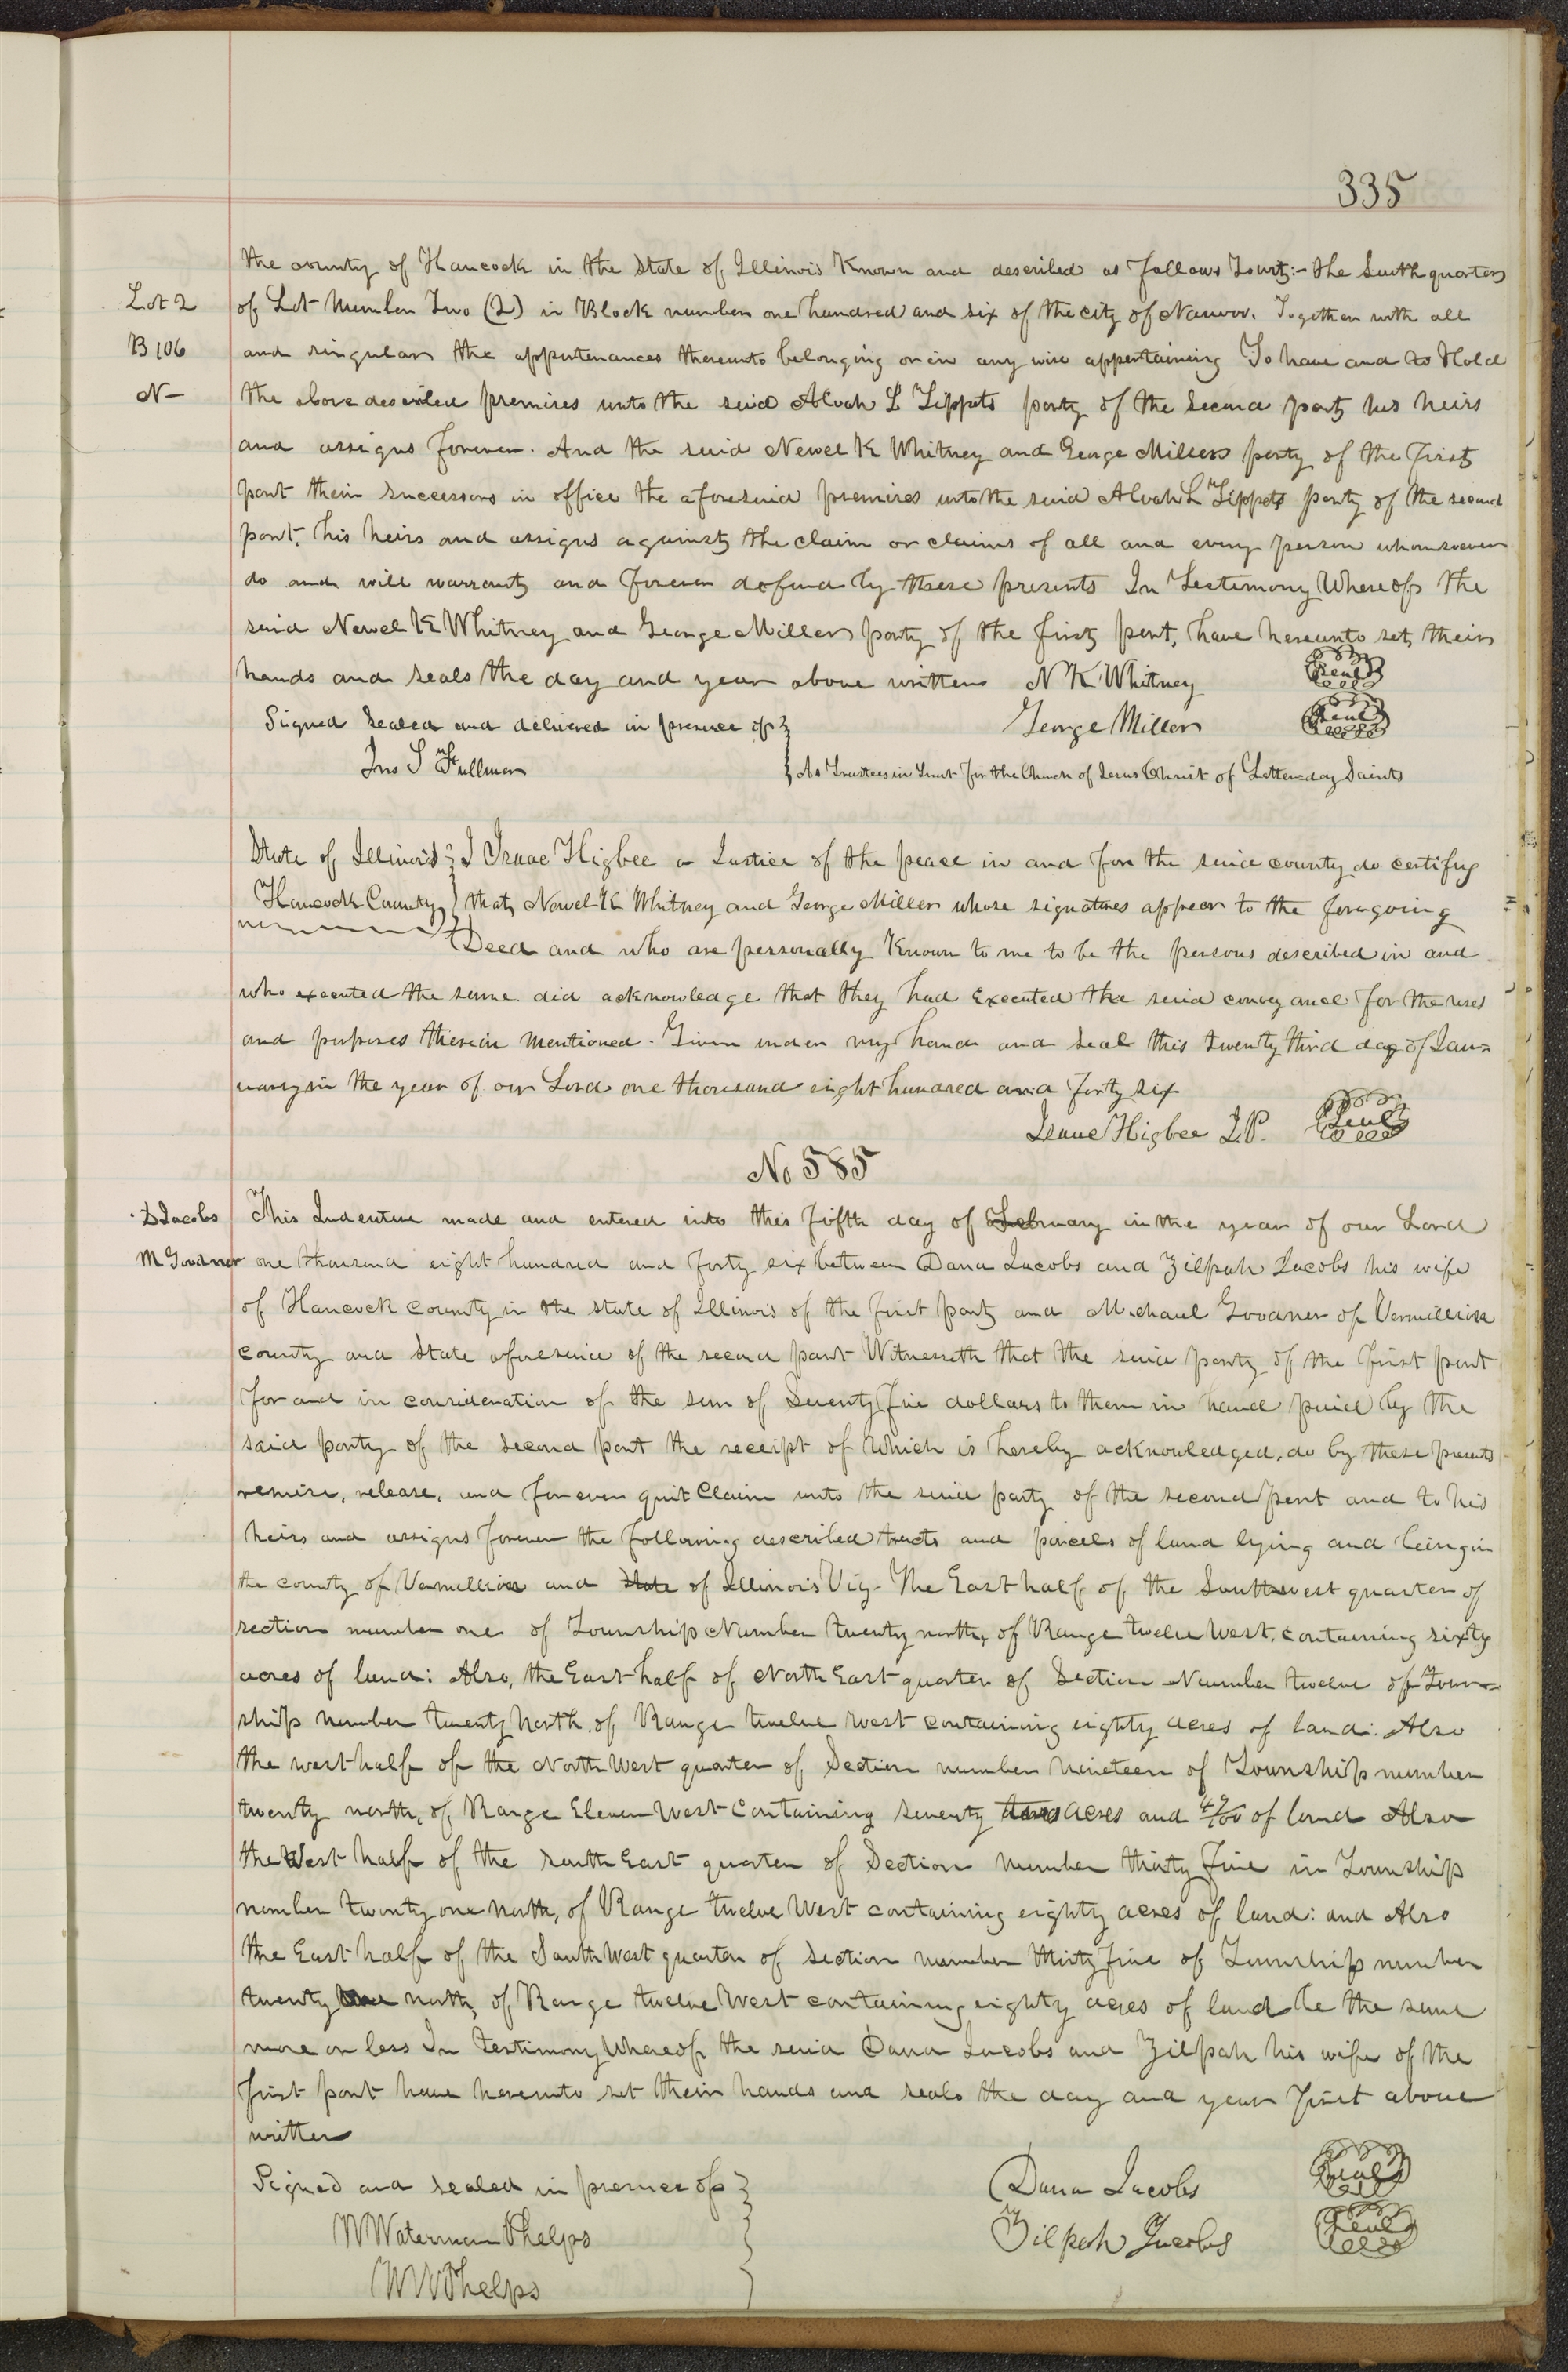 335
the county of Hancock in the State of Illinois Known and described as follows Towit:- the South quarter
Lot 2
of Lot Number Two (2) in Block number one hundred and six of the city of Nauvoo. Together with all
B 106
and singular the appurtenances thereunto belonging or in any wise appertaining To have and to Hold
N-
the above described premises unto the said Alvah L Tippets party of the Second part his heirs
and assigns forever. And the said Newel K Whitney and George Miller party of the first
part their successors in office the aforesaid premises unto the said Alvah L Tippets party of the second
part, his heirs and assigns against the claim or claims of all and every person whomsoever
do and will warrant and forever defend by these presents In Testimony Whereof the
said Newel K Whitney and George Miller party of the first part, have hereunto set their
hands and seals the day and year above written N K Whitney Seal
Signed Sealed and delivered in presence of George Miller Seal
Jno S Fullmer As Trustees in Trust for the Church of Jesus Christ of Latter-day Saints
State of Illinois I Isaac Higbee a Justice of the peace in and for the said county do certify
Hancock County that Newel K Whitney and George Miller whose signatures appear to the foregoing
Deed and who are personally Known to me to be the persons described in and
who executed the same did acknowledge that they had Executed the said conveyance for the uses
and purposes therein mentioned. Given under my hand and Seal this twenty third day of Jan=
uary in the year of our Lord one thousand eight hundred and forty six
Isaac Higbee J.P. Seal
No 585
D Jacobs
This Indenture made and entered into this fifth day of February in the year of our Lord
M Goodner
one thousand eight hundred and forty six between Dana Jacobs and Zilpah Jacobs his wife
of Hancock county in the state of Illinois of the first part and Michael Goodner of Vermillion
county and State aforesaid of the second part Witnesseth that the said party of the first part
for and in consideration of the sum of Seventy five dollars to them in hand paid by the
said party of the Second part the receipt of Which is hereby acknowledged, do by these presents
remise, release, and forever quit Claim unto the said party of the second part and to his
heirs and assigns forever the following described tracts and parcels of land lying and being in
the county of Vermillion and State of Illinois Viz- The East half of the Southwest quarter of
section number one of Township Number twenty north, of Range twelve West, containing sixty
acres of land: Also, the East half of North East quarter of Section Number twelve of Town=
ship number twenty North, of Range twelve West containing eighty acres of land: Also
the west half of the North West quarter of Section number nineteen of Township number
twenty north, of Range Eleven West Containing seventy acres and 49/100 of land Also
the West half of the South East quarter of Section Number thirty five in Township
number twenty one North, of Range twelve West containing eighty acres of land: and Also
the East half of the South West quarter of Section number thirty five of Township number
twenty one north, of Range twelve West containing eighty acres of land be the same
more or less In testimony whereof the said Dana Jacobs and Zilpah his wife of the
first part have hereunto set their hands and seals the day and year first above
written
Signed and sealed in presence of Dana Jacobs Seal
W Waterman Phelps Zilpah Jacobs Seal
W W Phelps